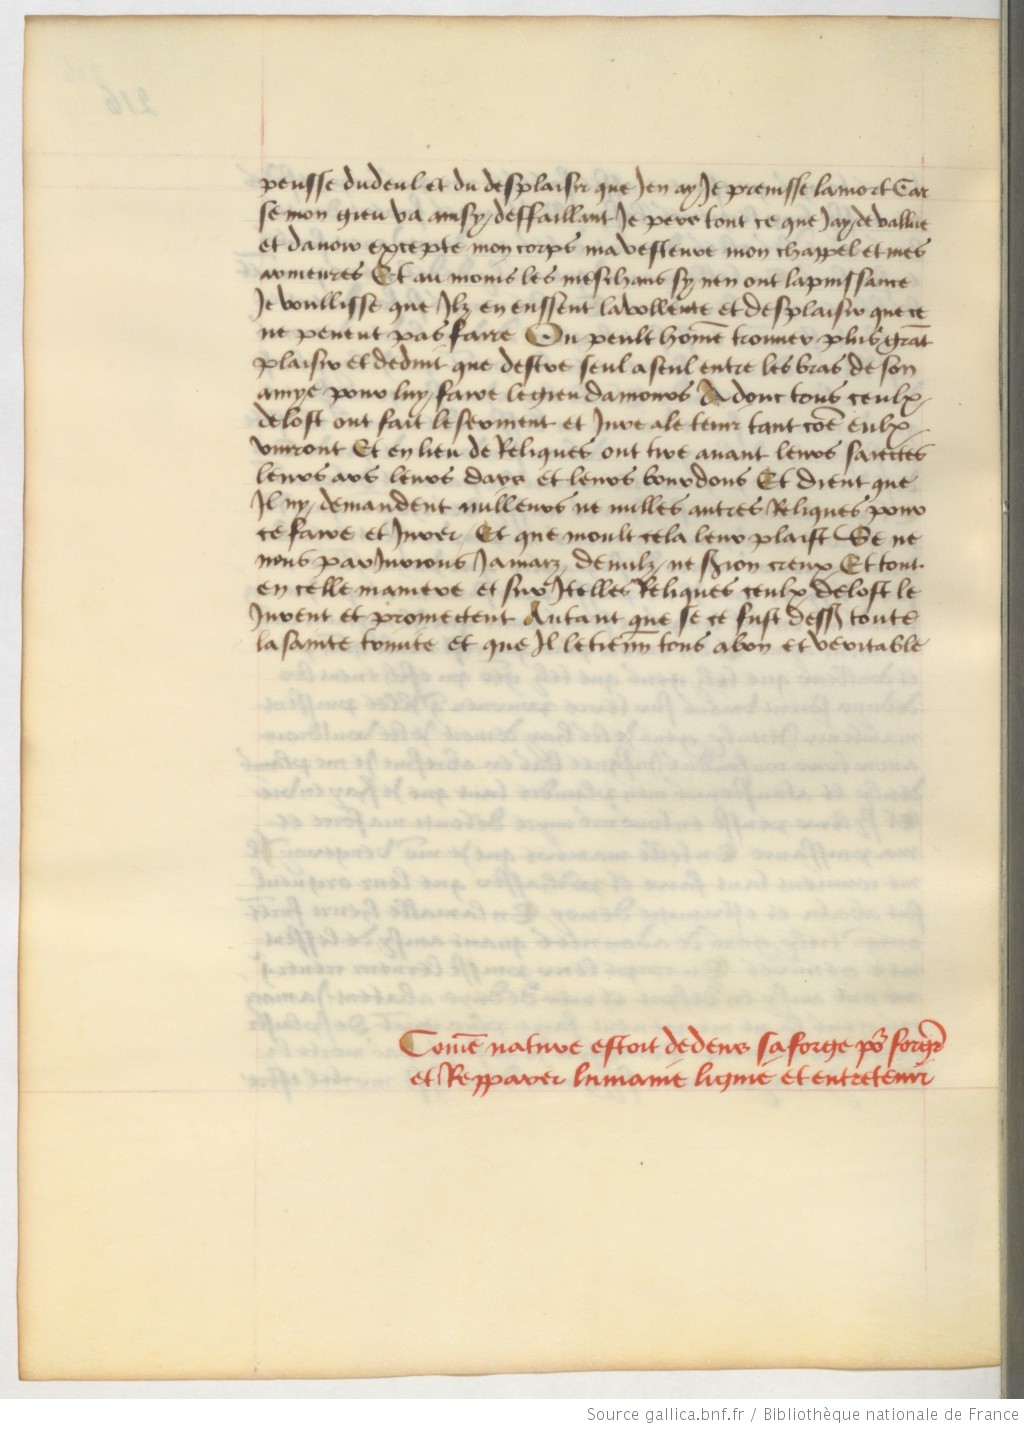 peusse du deul et du desplaisir que Jen ay Je prenisse la mort Car
se mon gieu va ainsy deffaillant Je pers tout ce que Jay de vallue
et dauoir excepte mon corps ma vesteure mon chappel et mes
armeures Et au moins les meschans sy nen ont la puissance
Je voullisse que Ilz en eussent la vollente et desplaisir que ce
ne peuent pas faire Ou peult home trouuer plus grat
plaisir et deduit que destre seul a seul entre les bras de son
amye pour luy faire le gieu damours Adonc tous ceulx
de lost ont fait le serment et Jure a le tenir tant coe eulx
viuront Et en lieu de Reliques ont tire auant leurs saiectes
leurs ars leurs dars et leurs bourdons Et dient que
Il ny demandent nulleurs ne nulles autres Reliques pour
ce faire et Jurer Et que moult cela leur plaist Se ne
nous pariurions Jamaiz de nulz ne seron creux Et tout
en celle maniere et sur Itelles Reliques ceulx de lost le
Jurent et promectent Autant que se ce fust dess toute
la sainte trinite et que Il le tienn tous a bon et veritable
Come nature estoit dedens sa forge po forgr
et Reppaver lumaine lignie et entretenir
Source gallica.bnf.fr / Bibliothèque nationale de France